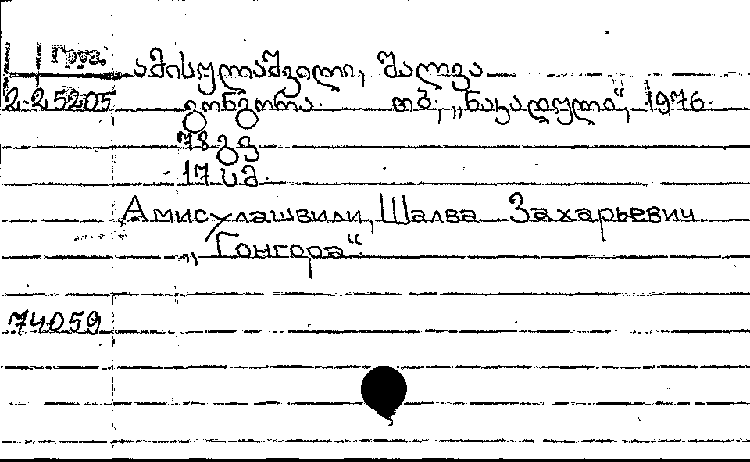 Груз.
ამისულაშვილი, შალვა
2-25205 გონგორა. თბ., „ნაკადული“, 1976.
78 გვ
17 სმ.
Амисулашвили, Шалва Захарьевич
„Гонгора“.
74059